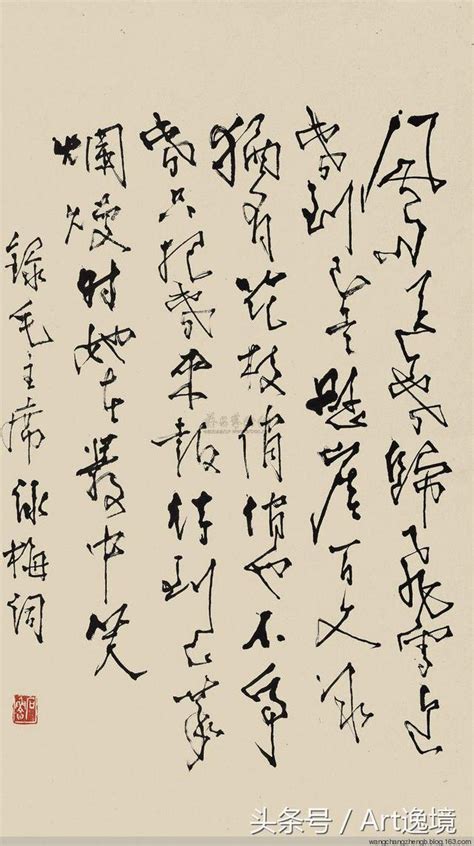 風雨送春歸飛雪迎
春到已是懸崖百丈冰
猶有花枝俏俏也不爭
春只把春来報待到山花
爛熳时她在叢中笑
錄毛主席詠梅詞
石魯
头条号 / Art逸境
wangchangzhengb.blog.163.com